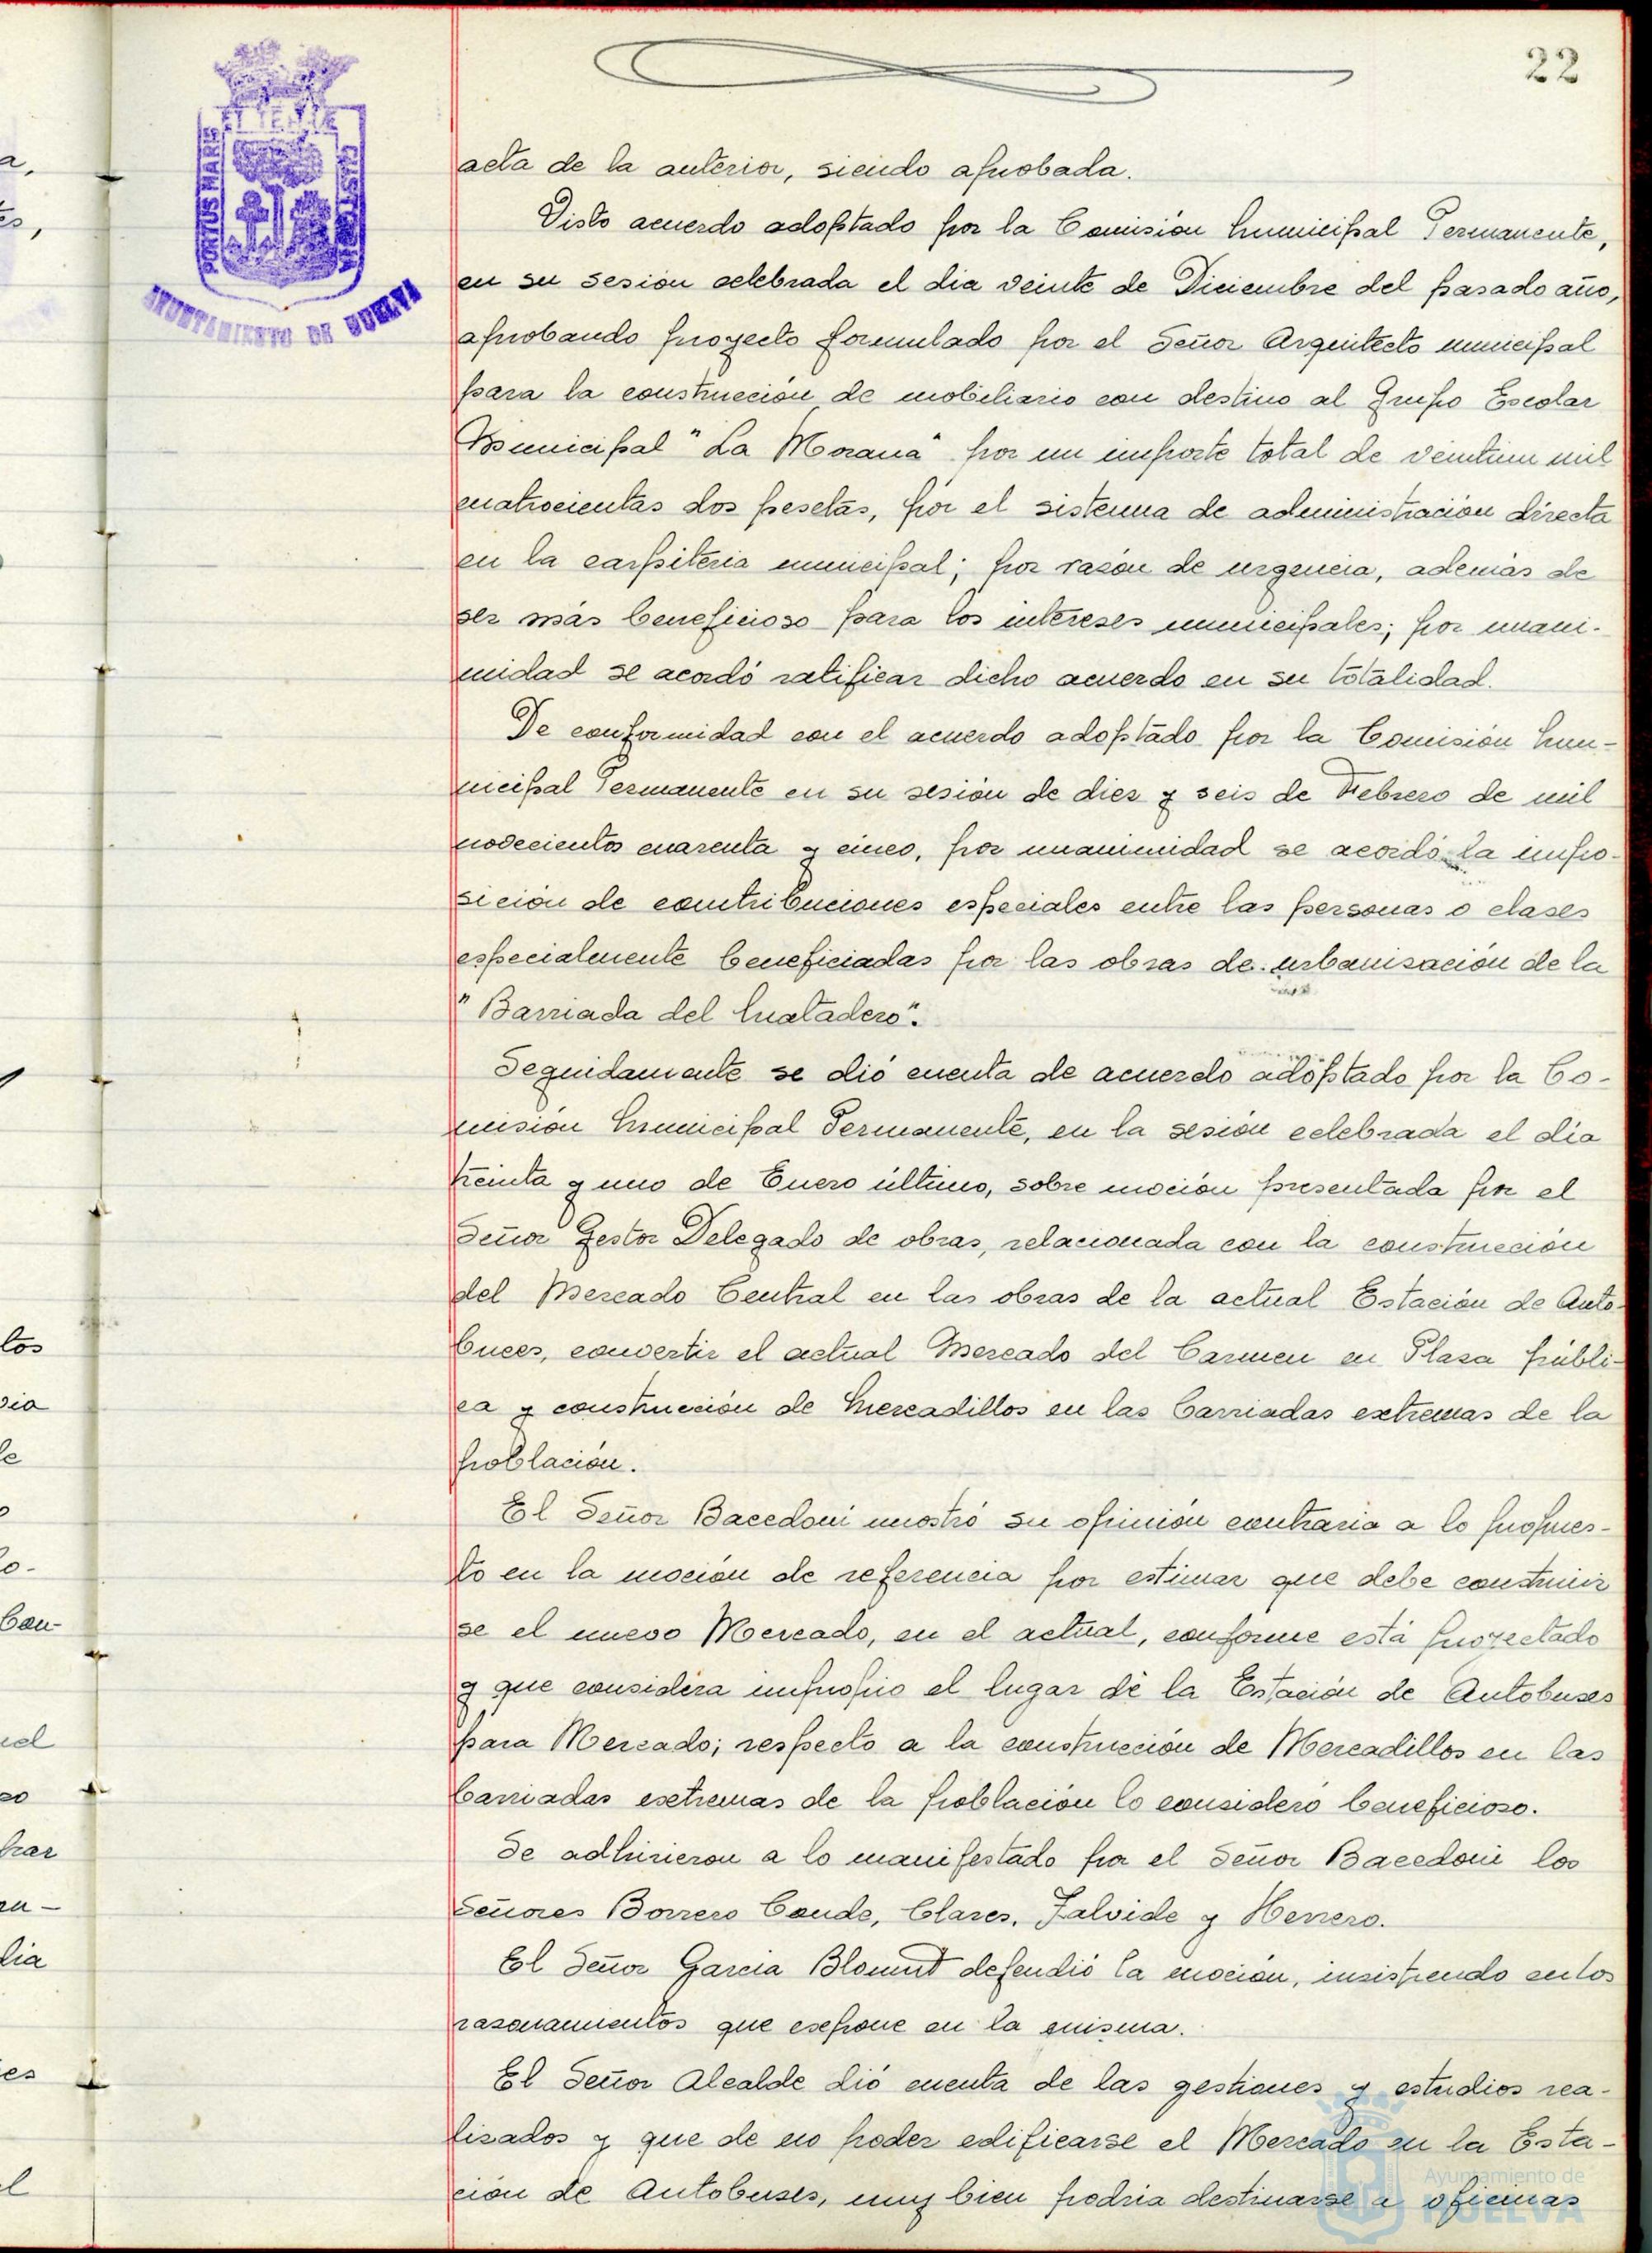 22
ET TERRE
PORTUS MARIS
CUSTODIA
AYUNTAMIENTO DE HUELVA
acta de la anterior, siendo aprobada.
Visto acuerdo adoptado por la Comisión Municipal Permanente,
en su sesión celebrada el dia veinte de Diciembre del pasado año,
aprobando proyecto formulado por el Señor Arquitecto municipal
para la construcción de mobiliario con destino al Grupo Escolar
Municipal "La Morana" por un importe total de veintiun mil
cuatrocientas dos pesetas, por el sistema de administración directa
en la carpiteria municipal; por razón de urgencia, además de
ser más beneficioso para los intereses municipales; por unani-
midad se acordó ratificar dicho acuerdo en su totalidad.
De conformidad con el acuerdo adoptado por la Comisión Mu-
nicipal Permanente en su sesión de diez y seis de Febrero de mil
novecientos cuarenta y cinco, por unanimidad se acordó la impo-
sición de contribuciones especiales entre las personas o clases
especialmente beneficiadas por las obras de urbanización de la
"Barriada del Matadero".
Seguidamente se dió cuenta de acuerdo adoptado por la Co-
misión Municipal Permanente, en la sesión celebrada el día
treinta y uno de Enero último, sobre moción presentada por el
Señor Gestor Delegado de obras, relacionada con la construcción
del Mercado Central en las obras de la actual Estación de Auto-
buces, convertir el actual Mercado del Carmen en Plaza públi-
ca y construcción de Mercadillos en las barriadas extremas de la
población.
El Señor Bacedoni mostró su opinión contraria a lo propues-
to en la moción de referencia por estimar que debe construir
se el nuevo Mercado, en el actual, conforme está proyectado
y que considera impropio el lugar de la Estación de Autobuses
para Mercado; respecto a la construcción de Mercadillos en las
barriadas extremas de la población lo consideró beneficioso.
Se adhirieron a lo manifestado por el Señor Bacedoni los
Señores Borrero Conde, Clares, Jalvide y Herrero.
El Señor Garcia Blount defendió la moción, insistiendo en los
razonamientos que expone en la misma.
El Señor Alcalde dió cuenta de las gestiones y estudios rea-
lizados y que de no poder edificarse el Mercado en la Esta-
ción de Autobuses, muy bien podria destinarse a oficinas
Ayuntamiento de
HUELVA